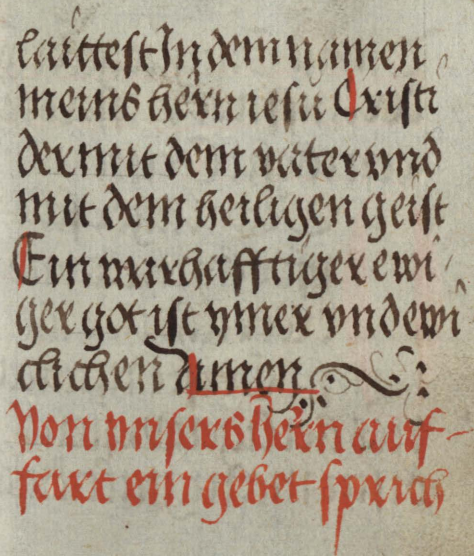 laittest In dem namen
meins hern iesu Cristi
der mit dem vater vnd
mit dem heiligen geist
Ein warhafftiger ewi
ger got ist ymer vnd ewi
clichen Amen
Von vnsers hern auf-
fart ein gebet sprich